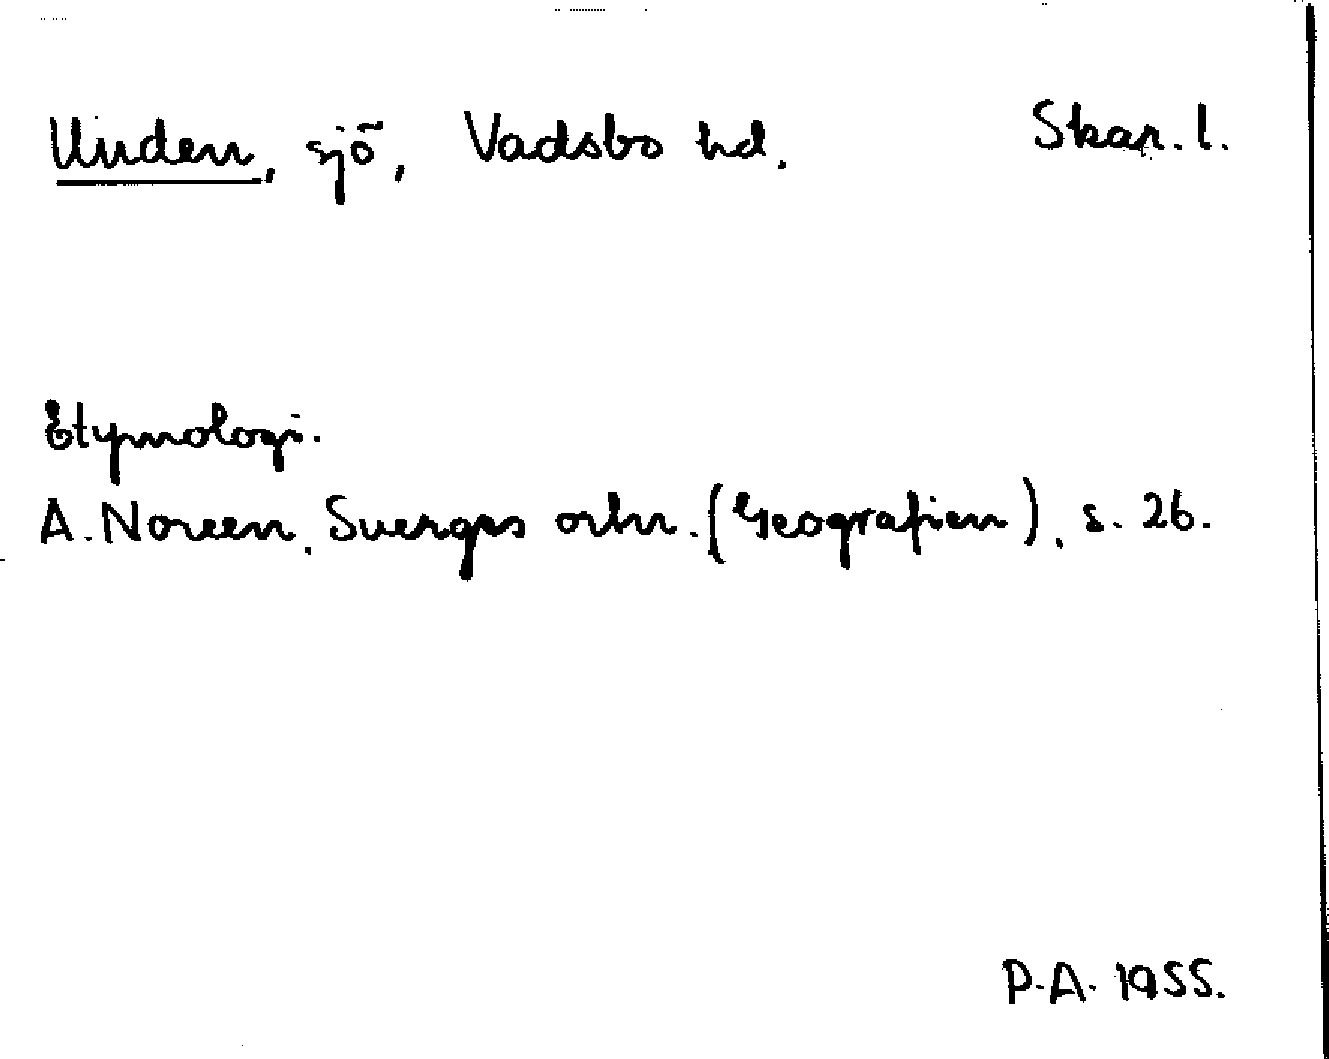 Unden, sjö, Vadsbo hd. Skar. l.
Etymologi.
A. Noreen, Sverges ortn. (Geografien), s. 26.
P.A. 1955.